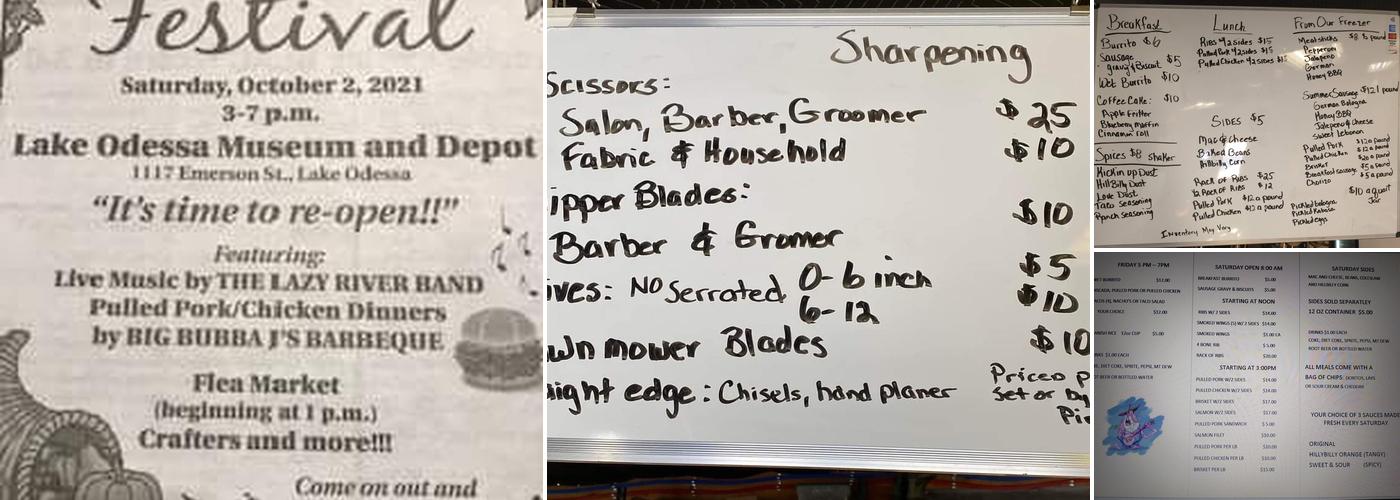 Festival
Saturday, October 2, 2021
3-7 p.m.
Lake Odessa Museum and Depot
1117 Emerson St., Lake Odessa
"It's time to re-open!!"
Featuring:
Live Music by THE LAZY RIVER BAND
Pulled Pork/Chicken Dinners
by BIG BUBBA J'S BARBEQUE
Flea Market
(beginning at 1 p.m.)
Crafters and more!!!
Come on out and
Sharpening
Scissors:
Salon, Barber, Groomer $25
Fabric & Household $10
ipper Blades:
Barber & Gromer $10
ives: No Serrated 0-6 inch $5
6-12 $10
wn mower Blades $10
aight edge: Chisels, hand planer Priced p
Set or by
Pi
Breakfast
Burrito $6
Sausage
gravy & Biscuit $5
Wet Burrito $10
Coffee Cake: $10
Apple Fritter
Blueberry muffin
Cinnamon roll
Spices $8 shaker
Kickin up Dust
HillBilly Dust
Love Dust
Taco Seasoning
Ranch Seasoning
Lunch
Ribs w/2 sides $15
Pulled Pork w/2 sides $15
Pulled Chicken w/2 sides $15
SIDES $5
Mac & Cheese
Baked Beans
Hillbilly Corn
Rack of Ribs $25
1/2 Rack of Ribs $12
Pulled Pork $12 a pound
Pulled Chicken $12 a pound
Inventory May Vary
From Our Freezer
Meat sticks $8 1/2 pound
Pepperoni
Jalapeno
German
Honey BBQ
Summer Sausage $12 1 pound
German Bologna
Honey BBQ
Jalepeno & Cheese
Sweet Lebanon
Pulled Pork $12 a pound
Pulled Chicken $12 a pound
Brisket $20 a pound
Breakfast sausage $5 a pound
Chorizo $5 a pound
$10 a quart
Jar
Pickled bologna
Pickled Kabasa
Pickled eggs
FRIDAY 5 PM – 7PM
ET BURRITO $12.00
PULLED PORK OR PULLED CHICKEN
NACHO'S OR TACO SALAD
YOUR CHOICE $12.00
RICE 12oz CUP $5.00
NKS $1.00 EACH
E, DIET COKE, SPRITE, PEPSI, MT DEW
OT BEER OR BOTTLED WATER
SATURDAY OPEN 8:00 AM
BREAKFAST BURRITO $5.00
SAUSAGE GRAVY & BISCUITS $5.00
STARTING AT NOON
RIBS W/2 SIDES $14.00
SMOKED WINGS (5) W/2 SIDES $14.00
SMOKED WINGS $1.00 EA
4 BONE RIB $5.00
RACK OF RIBS $20.00
STARTING AT 3:00PM
PULLED PORK W/2 SIDES $14.00
PULLED CHICKEN W/2 SIDES $14.00
BRISKET W/2 SIDES $17.00
SALMON W/2 SIDES $17.00
PULLED PORK SANDWICH $5.00
SALMON FILET $10.00
PULLED PORK PER LB $10.00
PULLED CHICKEN PER LB $10.00
BRISKET PER LB $15.00
SATURDAY SIDES
MAC AND CHEESE, BEANS, COLESLAW
AND HILLBILLY CORN
SIDES SOLD SEPARATLEY
12 OZ CONTAINER $5.00
DRINKS $1.00 EACH
COKE, DIET COKE, SPRITE, PEPSI, MT DEW
ROOT BEER OR BOTTLED WATER
ALL MEALS COME WITH A
BAG OF CHIPS: DORITOS, LAYS
OR SOUR CREAM & CHEDDER
YOUR CHOICE OF 3 SAUCES MADE
FRESH EVERY SATURDAY
ORIGINAL
HILLYBILLY ORANGE (TANGY)
SWEET & SOUR (SPICY)